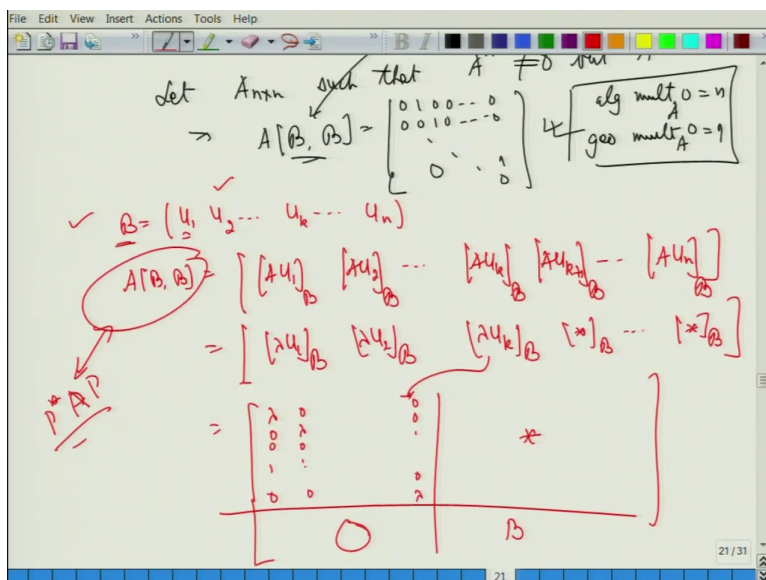 File Edit View Insert Actions Tools Help
Let A_{n×n} such that A ≠0 but
alg mult_A 0 = n
⇒ A[B, B] = [0 1 0 0 --- 0
0 0 1 0 --- 0
0 1
0]
geo mult_A 0 = 1
✓ B = (u_1 u_2 ... u_k ... u_n)
A[B, B] = [[Au_1]_B [Au_2]_B ... [Au_k]_B [Au_{k+1}]_B ... [Au_n]_B]
= [[λu_1]_B [λu_2]_B [λu_k]_B [*]_B ... [*]_B]
P* A P
= [λ 0 0
0 λ 0 *
0 0
0
0 0 λ
0 B]
21 / 31
21